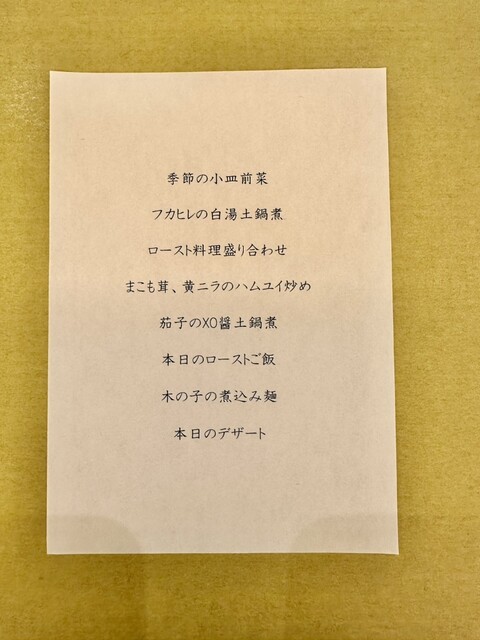 季節の小皿前菜
フカヒレの白湯土鍋煮
ロースト料理盛り合わせ
まこも茸、黄ニラのハムユイ炒め
茄子のXO醤土鍋煮
本日のローストご飯
木の子の煮込み麺
本日のデザート